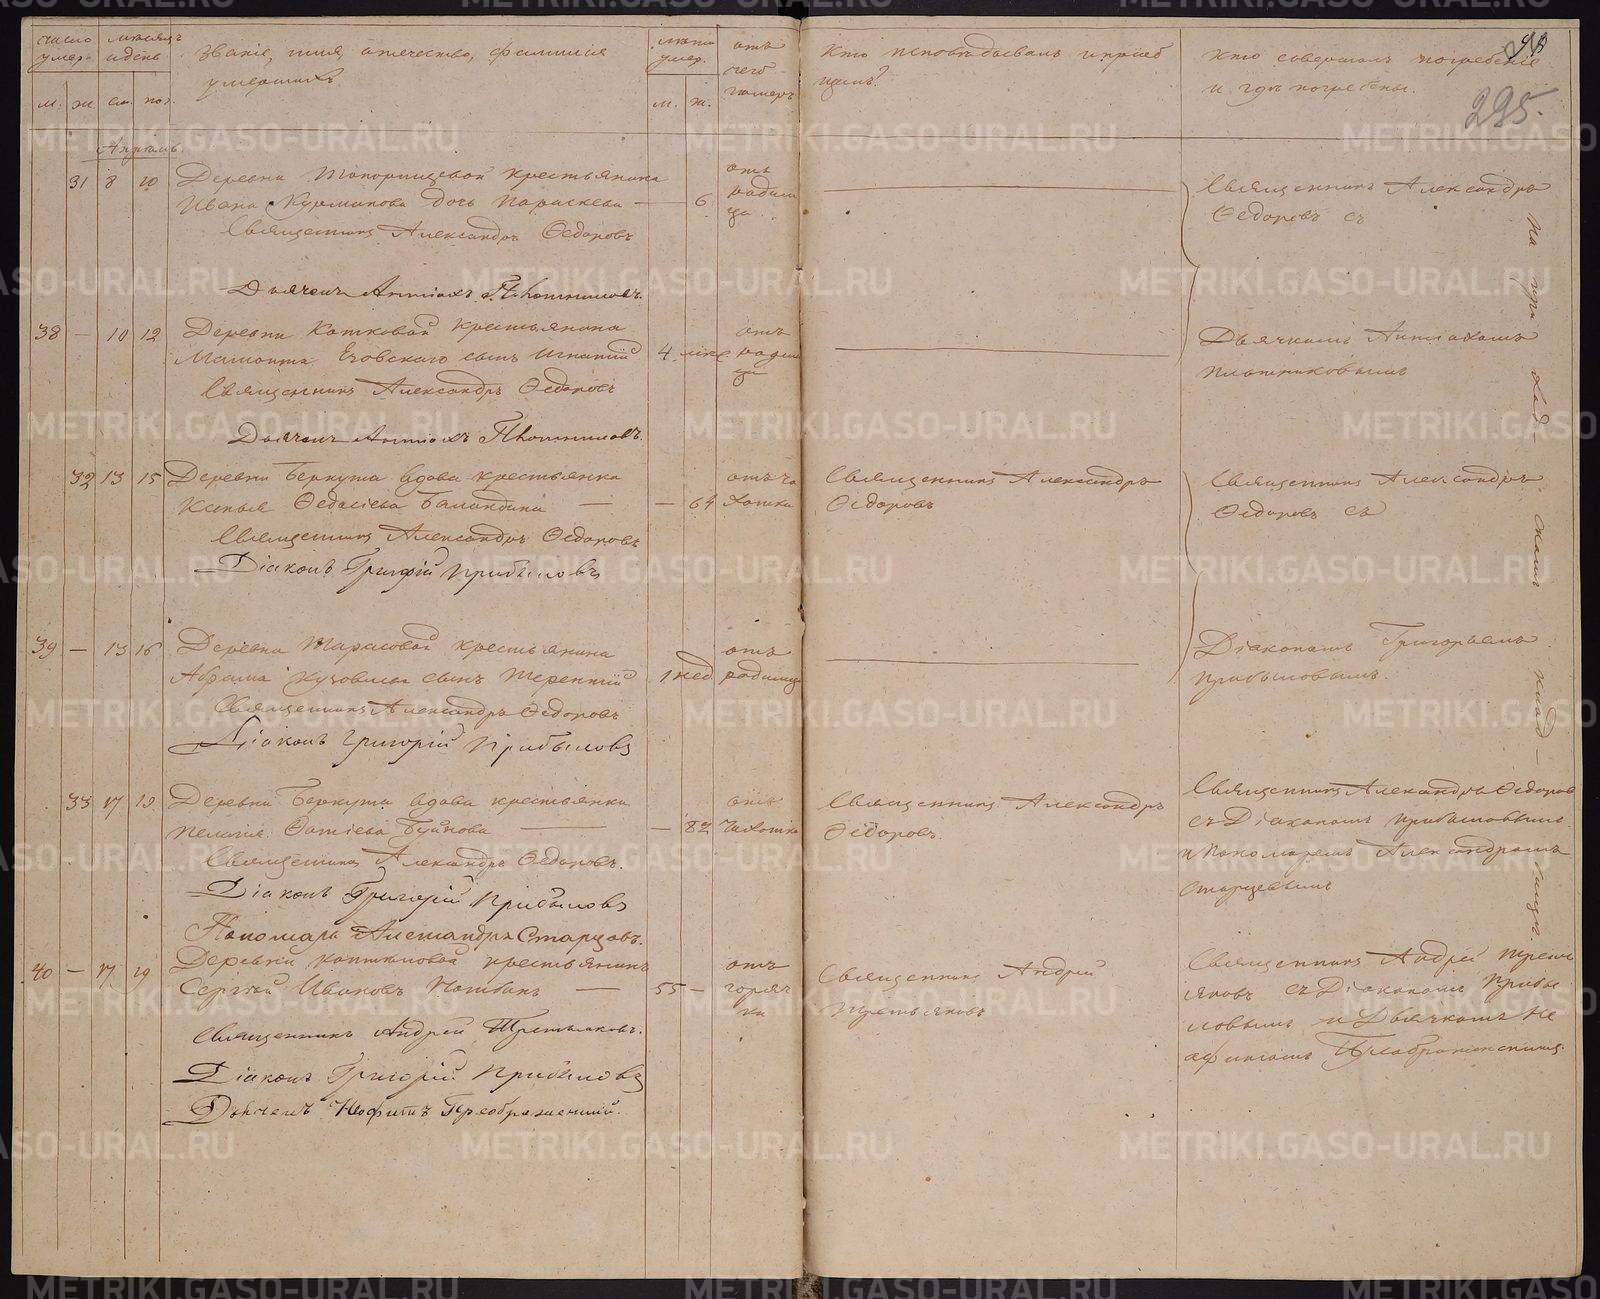 число умер.
месяцъ и день
званіе, имя, отчество, фамилія
умершихъ
лѣта умер.
отъ чего померъ
м. ж. см. пог.
м. ж.
Кто исповѣдывалъ и пріоб
щалъ?
Кто совершалъ погребеніе
и гдѣ погребены.
295.
Апрѣль.
31 8 10 Деревни Топорищевой крестьянина
Ивана Курмакова дочь Параскева — 6
отъ родим
ца
Священникъ Александръ Ѳедоровъ
Дьячекъ Антіохъ Плотниковъ.
Священникъ Александръ
Ѳедоровъ съ
Дьячкомъ Антіохомъ
Плотниковымъ
38 — 10 12 Деревни Катковой крестьянина
сынъ Игнатій 4
отъ родим
ца
Священникъ Александръ Ѳедоровъ
Дьячекъ Антіохъ Плотниковъ.
32 13 15 Деревни Беркута вдова крестьянка
Ксенья Баландина — — 64
отъ ча
хотки
Священникъ Александръ Ѳедоровъ
Діаконъ Григорій Прибыловъ
Священникъ Александръ
Ѳедоровъ
Священникъ Александръ
Ѳедоровъ съ
Діакономъ Григорьемъ
Прибыловымъ.
39 — 13 16 Деревни Тарасовой крестьянина
Абрама сынъ Терентій 1 нед
отъ
родимца
Священникъ Александръ Ѳедоровъ
Діаконъ Григорій Прибыловъ
33 17 19 Деревни Беркута вдова крестьянка
Пелагія Буйнова — — 82
отъ
чахотки
Священникъ Александръ Ѳедоровъ.
Діаконъ Григорій Прибыловъ
Пономарь Александръ Старцовъ.
Священникъ Александръ
Ѳедоровъ.
Священникъ Александръ Ѳедоров
съ Діакономъ Прибыловымъ
и Пономаремъ Александромъ
Старцевымъ
40 — 17 19 Деревни крестьянинъ
Сергѣй Ивановъ — 55 —
отъ
горяч
ки
Священникъ Андрей Третьяковъ.
Діаконъ Григорій Прибыловъ
Дьячекъ Неофитъ Преображенскій.
Священникъ Андрей
Третьяковъ
Священникъ Андрей Треть
яковъ съ Діакономъ Прибы
ловымъ и Дьячкомъ Не
офитомъ Преображенскимъ.
На при ход — скомъ клад — бищѣ.
METRIKI.GASO-URAL.RU